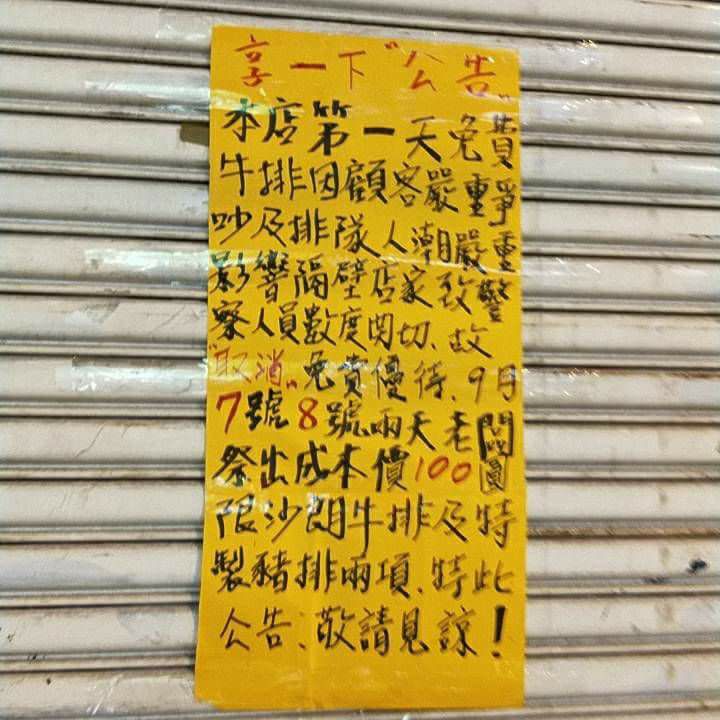 享一下"公告"
本店第一天免費
牛排因顧客嚴重爭
吵及排隊人潮嚴重
影響隔壁店家致警
察人員數度関切、故
"取消"免費優待、9月
7號8號兩天老闆
祭出成本價100圓
限沙朗牛排及特
製豬排兩項、特此
公告、敬請見諒！